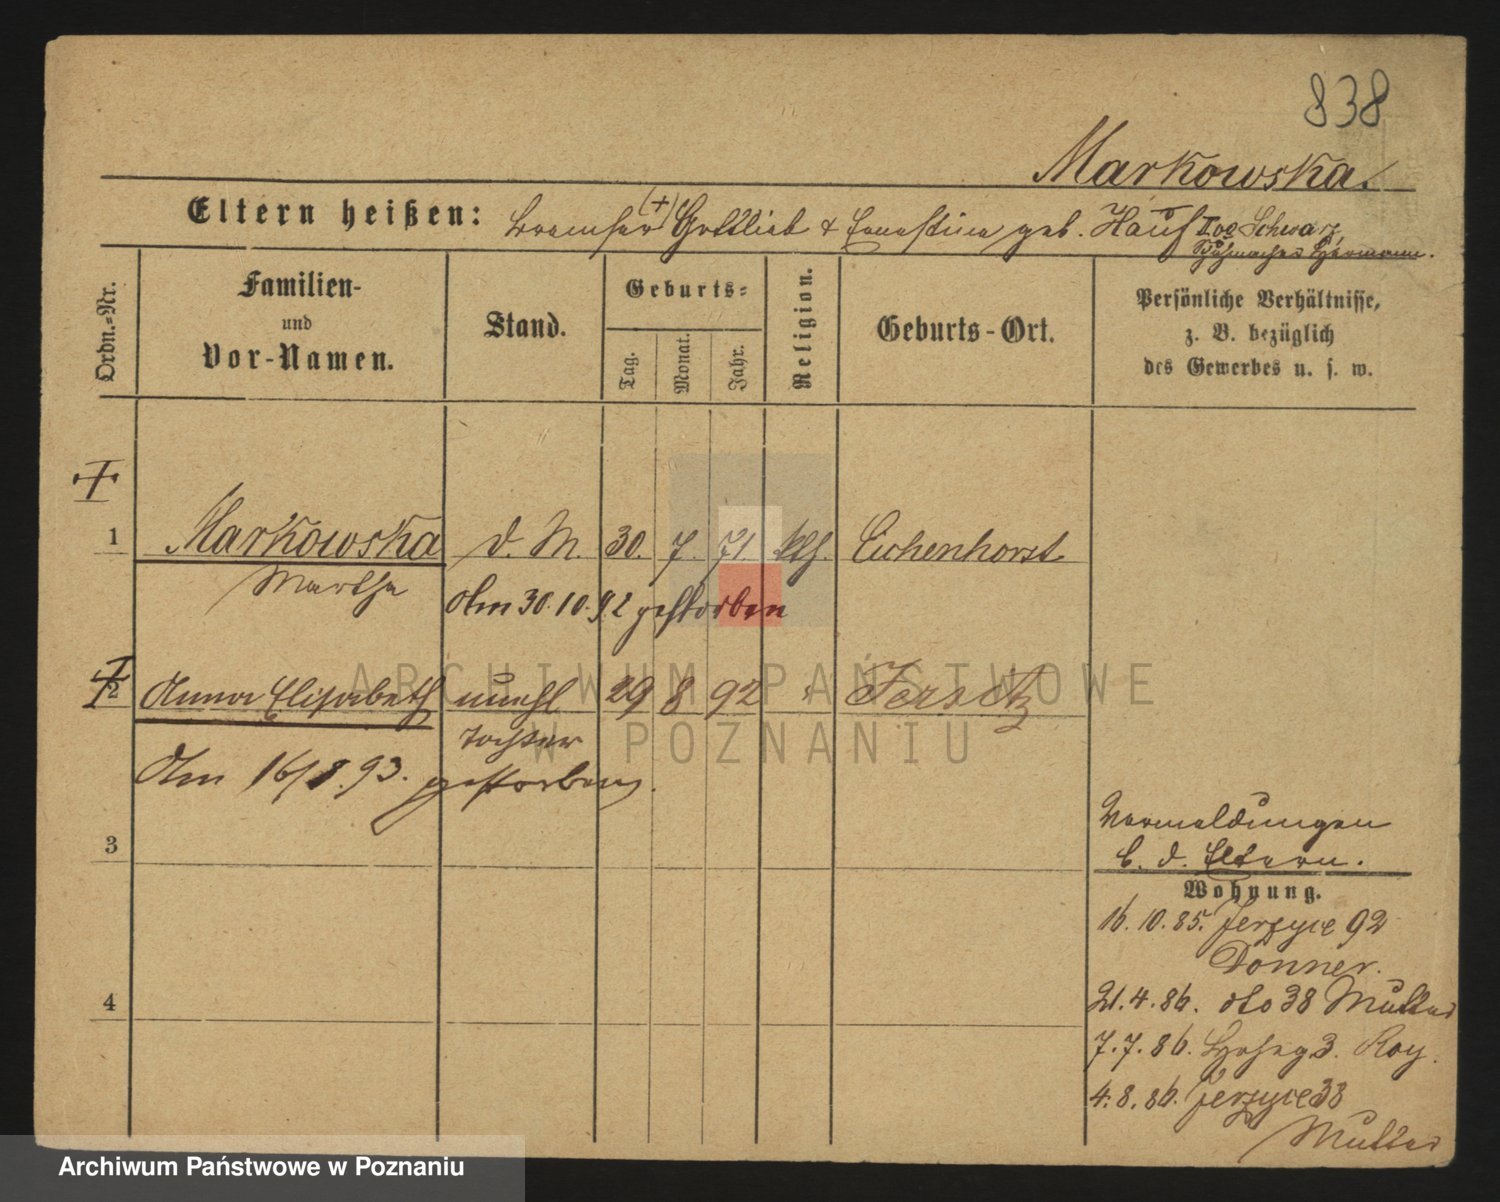 838
Markowska.
Eltern heißen: (+) Gottlieb & Ernestine geb. Hauf II vo Schwarz,
Hermann.
Ordn.=Nr.
Familien-
und
Vor-Namen.
Stand.
Geburts=
Tag.
Monat.
Jahr.
Religion.
Geburts-Ort.
Persönliche Verhältnisse,
z. B. bezüglich
des Gewerbes u. s. w.
1 Markowska d. M. 30. 7. 71. kth. Eichenhorst
Martha
Am 30.10.92 gestorben
2 Anna Elisabeth unehl 29 8 92 Jersitz
Tochter
Am 16/8.93. gestorben.
3
4
Vermeldungen
b. d. Eltern.
Wohnung.
16. 10. 85. Jerzyce 92
Donner.
21. 4. 86. dto 38 Mutter
7. 7. 86. 3. Roy.
4. 8. 86. Jerzyce 38
Mutter
ARCHIWUM PAŃSTWOWE
W POZNANIU
Archiwum Państwowe w Poznaniu